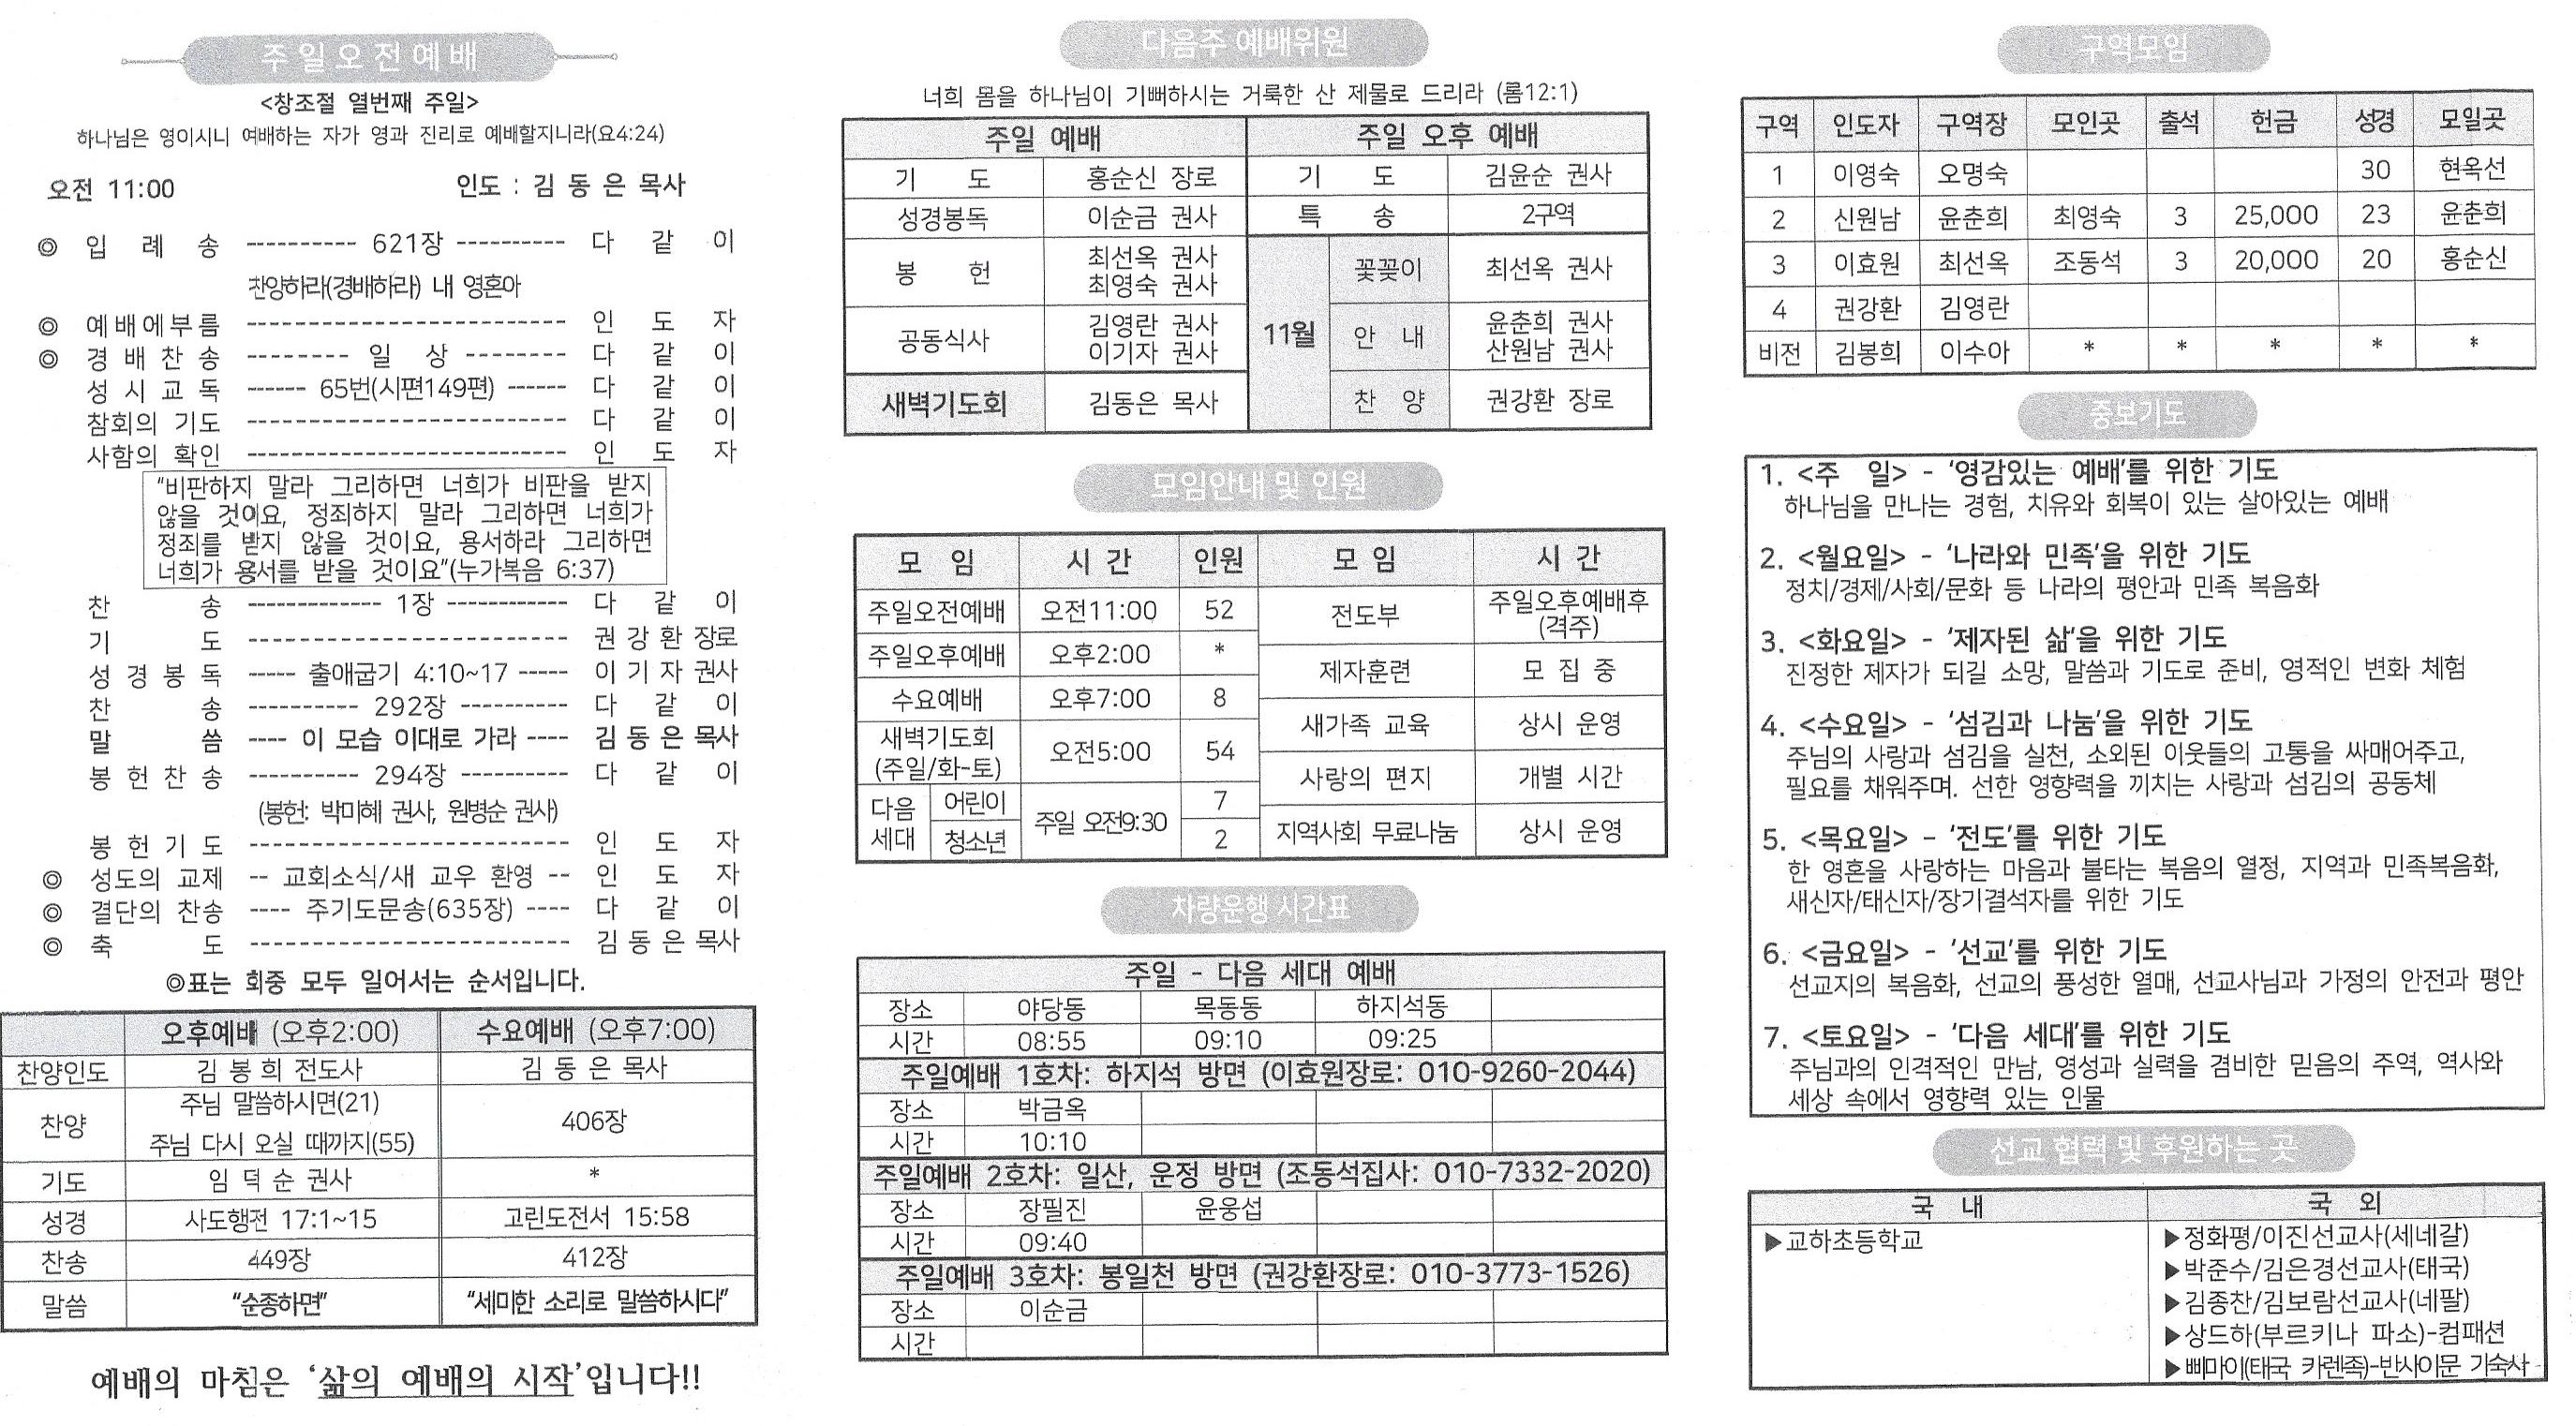 주일오전예배
<창조절 열번째 주일>
하나님은 영이시니 예배하는 자가 영과 진리로 예배할지니라(요4:24)
오전 11:00 인도 : 김 동 은 목사
◎ 입 례 송 ---------- 621장 ---------- 다 같 이
찬양하라(경배하라) 내 영혼아
◎ 예배에부름 ----------------------------- 인 도 자
◎ 경 배 찬 송 -------- 일 상 --------- 다 같 이
성 시 교 독 ------ 65번(시편149편) ------ 다 같 이
참회의 기도 ----------------------------- 다 같 이
사함의 확인 ----------------------------- 인 도 자
“비판하지 말라 그리하면 너희가 비판을 받지
않을 것이요, 정죄하지 말라 그리하면 너희가
정죄를 받지 않을 것이요, 용서하라 그리하면
너희가 용서를 받을 것이요”(누가복음 6:37)
찬 송 ------------ 1장 ----------- 다 같 이
기 도 ----------------------------- 권 강 환 장로
성 경 봉 독 ----- 출애굽기 4:10~17 ----- 이 기 자 권사
찬 송 ---------- 292장 ---------- 다 같 이
말 씀 ---- 이 모습 이대로 가라 ---- 김 동 은 목사
봉 헌 찬 송 ---------- 294장 ---------- 다 같 이
(봉헌: 박미혜 권사, 원병순 권사)
봉 헌 기 도 ----------------------------- 인 도 자
◎ 성도의 교제 -- 교회소식/새 교우 환영 -- 인 도 자
◎ 결단의 찬송 ---- 주기도문송(635장) ---- 다 같 이
◎ 축 도 ----------------------------- 김 동 은 목사
◎표는 회중 모두 일어서는 순서입니다.
오후예배 (오후2:00) 수요예배 (오후7:00)
찬양인도 김 봉 희 전도사 김 동 은 목사
찬양 주님 말씀하시면(21) 406장
주님 다시 오실 때까지(55)
기도 임 덕 순 권사 *
성경 사도행전 17:1~15 고린도전서 15:58
찬송 449장 412장
말씀 “순종하면” “세미한 소리로 말씀하시다”
예배의 마침은 ‘삶의 예배의 시작’입니다!!
다음주 예배위원
너희 몸을 하나님이 기뻐하시는 거룩한 산 제물로 드리라 (롬12:1)
주일 예배 주일 오후 예배
기 도 홍순신 장로 기 도 김윤순 권사
성경봉독 이순금 권사 특 송 2구역
봉 헌 최선옥 권사 최영숙 권사 11월 꽃꽂이 최선옥 권사
공동식사 김영란 권사 이기자 권사 안 내 윤춘희 권사 산원남 권사
새벽기도회 김동은 목사 찬 양 권강환 장로
모임안내 및 인원
모 임 시 간 인원 모 임 시 간
주일오전예배 오전11:00 52 전도부 주일오후예배후 (격주)
주일오후예배 오후2:00 * 제자훈련 모 집 중
수요예배 오후7:00 8 새가족 교육 상시 운영
새벽기도회 (주일/화-토) 오전5:00 54 사랑의 편지 개별 시간
다음 세대 어린이 주일 오전9:30 7 지역사회 무료나눔 상시 운영
청소년 2
차량운행 시간표
주일 - 다음 세대 예배
장소 야당동 목동동 하지석동
시간 08:55 09:10 09:25
주일예배 1호차: 하지석 방면 (이효원장로: 010-9260-2044)
장소 박금옥
시간 10:10
주일예배 2호차: 일산, 운정 방면 (조동석집사: 010-7332-2020)
장소 장필진 윤웅섭
시간 09:40
주일예배 3호차: 봉일천 방면 (권강환장로: 010-3773-1526)
장소 이순금
시간
구역모임
구역 인도자 구역장 모인곳 출석 헌금 성경 모일곳
1 이영숙 오명숙 30 현옥선
2 신원남 윤춘희 최영숙 3 25,000 23 윤춘희
3 이효원 최선옥 조동석 3 20,000 20 홍순신
4 권강환 김영란
비전 김봉희 이수아 * * * * *
중보기도
1. <주 일> - ‘영감있는 예배’를 위한 기도
하나님을 만나는 경험, 치유와 회복이 있는 살아있는 예배
2. <월요일> - ‘나라와 민족’을 위한 기도
정치/경제/사회/문화 등 나라의 평안과 민족 복음화
3. <화요일> - ‘제자된 삶’을 위한 기도
진정한 제자가 되길 소망, 말씀과 기도로 준비, 영적인 변화 체험
4. <수요일> - ‘섬김과 나눔’을 위한 기도
주님의 사랑과 섬김을 실천, 소외된 이웃들의 고통을 싸매어주고,
필요를 채워주며. 선한 영향력을 끼치는 사랑과 섬김의 공동체
5. <목요일> - ‘전도’를 위한 기도
한 영혼을 사랑하는 마음과 불타는 복음의 열정, 지역과 민족복음화,
새신자/태신자/장기결석자를 위한 기도
6. <금요일> - ‘선교’를 위한 기도
선교지의 복음화, 선교의 풍성한 열매, 선교사님과 가정의 안전과 평안
7. <토요일> - ‘다음 세대’를 위한 기도
주님과의 인격적인 만남, 영성과 실력을 겸비한 믿음의 주역, 역사와
세상 속에서 영향력 있는 인물
선교 협력 및 후원하는 곳
국 내 국 외
▶교하초등학교 ▶정화평/이진선교사(세네갈)
▶박준수/김은경선교사(태국)
▶김종찬/김보람선교사(네팔)
▶상드하(부르키나 파소)-컴패션
▶삐마이(태국 카렌족)-반사이문 기숙사